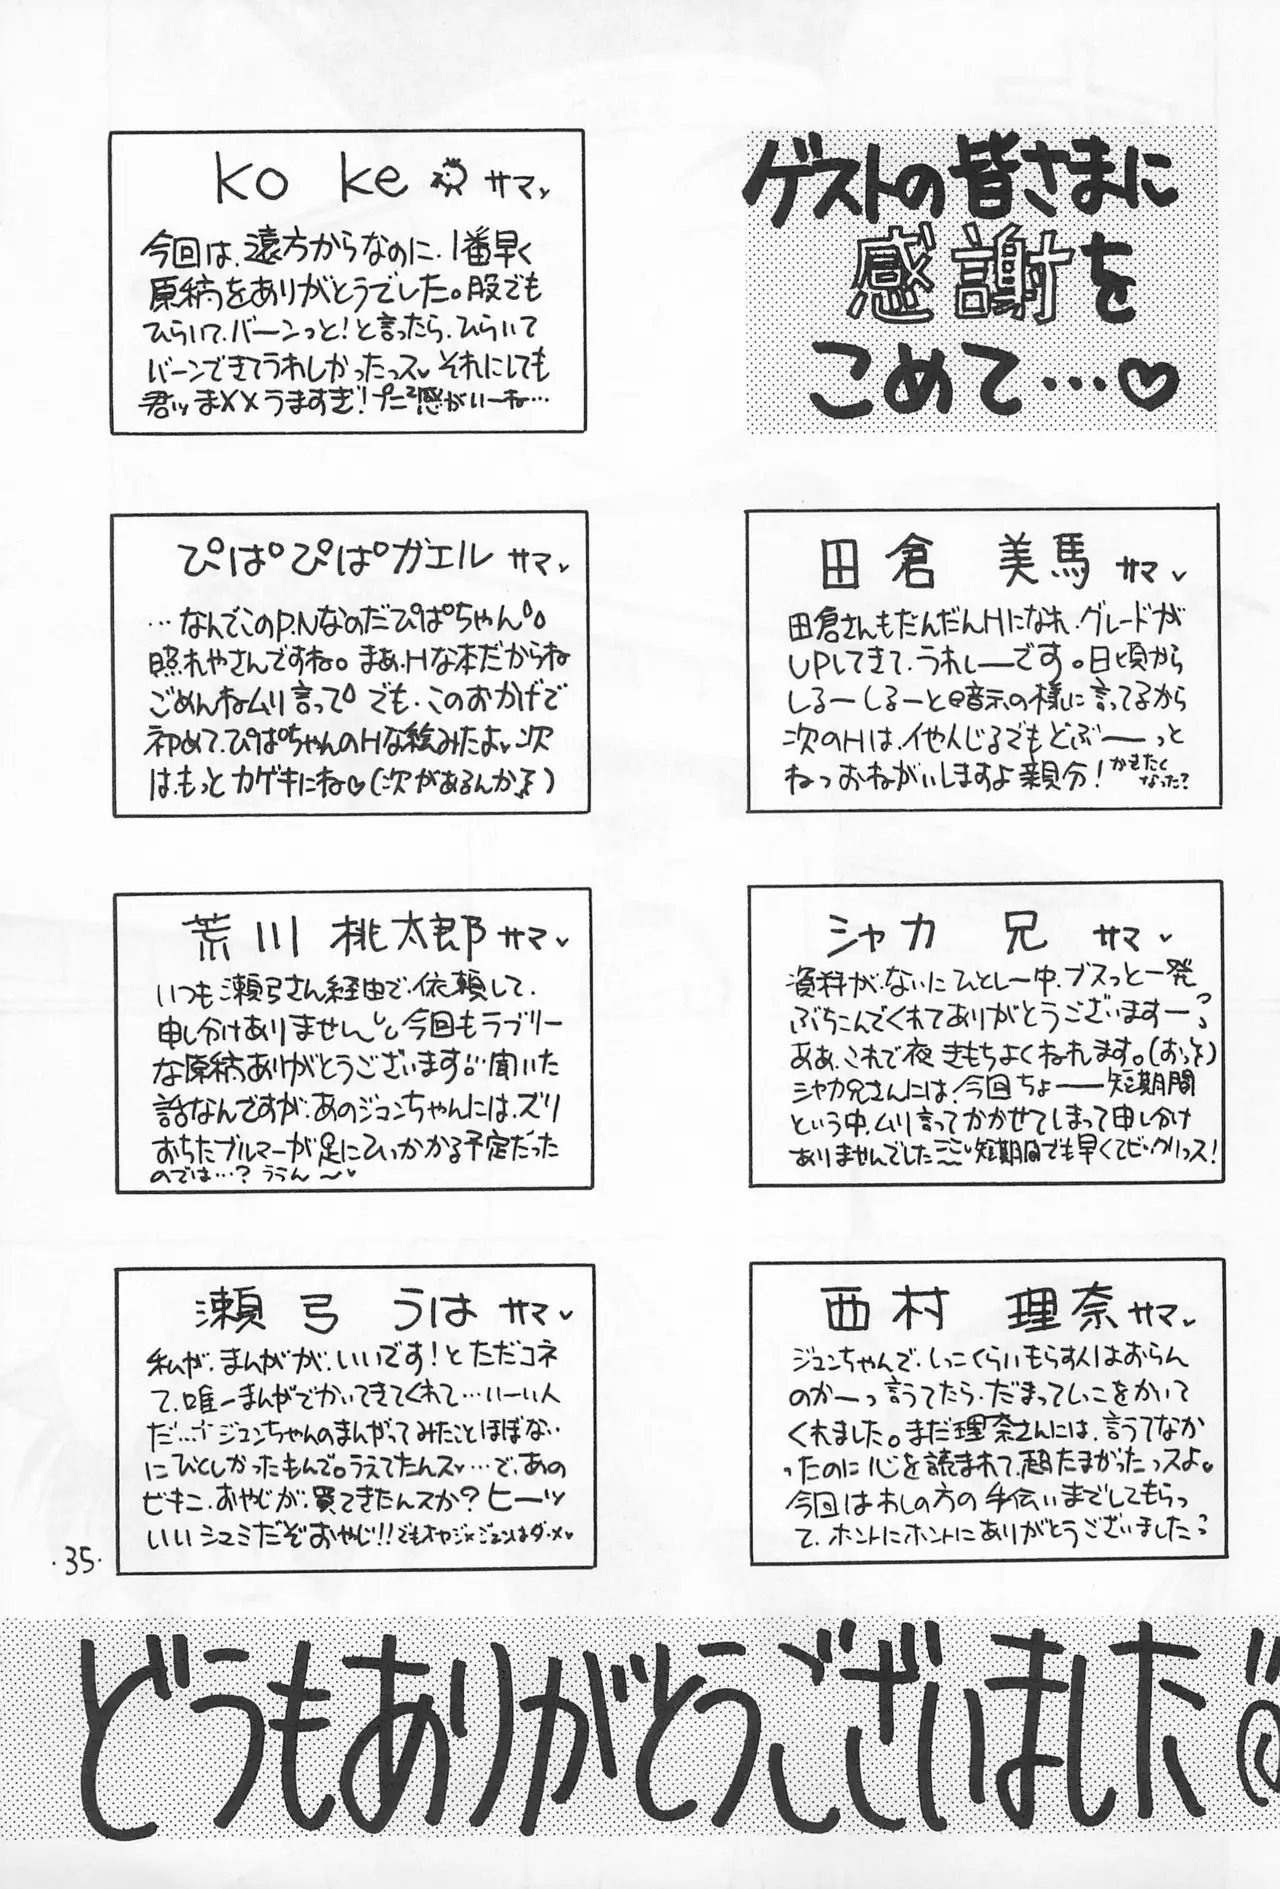 ゲストの皆さまに
感謝を
こめて…♡
ko ke サマ
今回は、遠方からなのに、1番早く
原稿をありがとうでした。股でも
ひらいて、バーンっと!と言ったら、ひらいて
バーンできてうれしかったっス それにしても
君ッま××うますぎ!プニ²感がいーね…
田倉 美馬サマ
田倉さんもだんだんHになれ、グレードが
UPしてきて、うれしーです。日頃から
しるーしるーと暗示の様に言ってるから
次のHは、イヤんじるでもどぶーーっと
ねっおねがいしますよ親分! かきたく
なった?
ぴぱ°ぴぱ°ガエル サマ
…なんでこのP.Nなのだぴぱちゃん
照れやさんですね。まあ、Hな本だからね
ごめんねムリ言って でも、このおかげで
初めて、ぴぱちゃんのHな絵みたよ 次
は、もっとカゲキにね♡(次があるんか)
シャカ 兄 サマ
資料が、ないにひとしー中、ブスっと一発
ぶちこんでくれてありがとうございますーっ
ああ、これで夜きもちよくねれます。(おっそ)
シャカ兄さんには、今回ちょーー短期間
という中、ムリ言ってかかせてしまって申し分け
ありませんでした 短期間でも早くてビックリっス!
荒川 桃太郎サマ
いつも瀬弓さん経由で、依頼して、
申し分けありません 今回もラブリー
な原稿ありがとうございます 聞いた
話なんですが、あのジュンちゃんには、ズリ
おちたブルマーが足にひっかかる予定だった
のでは…? ううん〜
西村 理奈サマ
ジュンちゃんで、しっこくらいもらす人はおらん
のかーっ言うてたら、だまってしっこをかいて
くれました。まだ理奈さんには、言うてなか
ったのに心を読まれて、超たまがったっスよ
今回はわしの方の手伝いまでしてもらっ
て、ホントにホントにありがとうございました
瀬弓 うは サマ
私が、まんがが、いいです!とただコネ
て、唯一まんがでかいてきてくれて…いーい人
だ… ジュンちゃんのまんがってみたことほぼない
にひとしかったもんで。うえてたんス…で、あの
ビキニ、おやじが、買てきたんスか?ヒーッ
いいシュミだぞおやじ!!でもオヤジ×ジュンはダ・メ
・35・
どうもありがとうございました